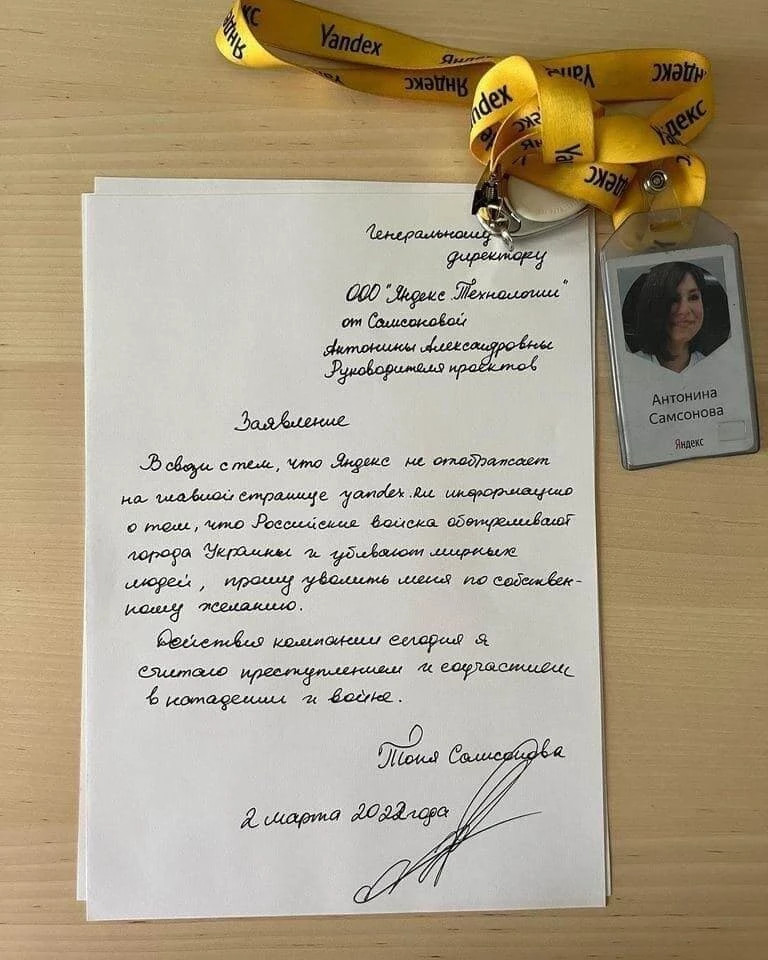 Яндекс
Yandex
Яндекс
Yandex
Яндекс
Яндекс
Генеральному
директору
ООО "Яндекс.Технологии"
от Самсоновой
Антонины Александровны
Руководителя проектов
Заявление
В связи с тем, что Яндекс не отображает
на главной странице yandex.ru информацию
о том, что Российские войска обстреливают
города Украины и убивают мирных
людей, прошу уволить меня по собствен-
ному желанию.
Действия компании сегодня я
считаю преступлением и соучастием
в нападении и войне.
Тоня Самсонова
2 марта 2022 года
Антонина
Самсонова
Яндекс